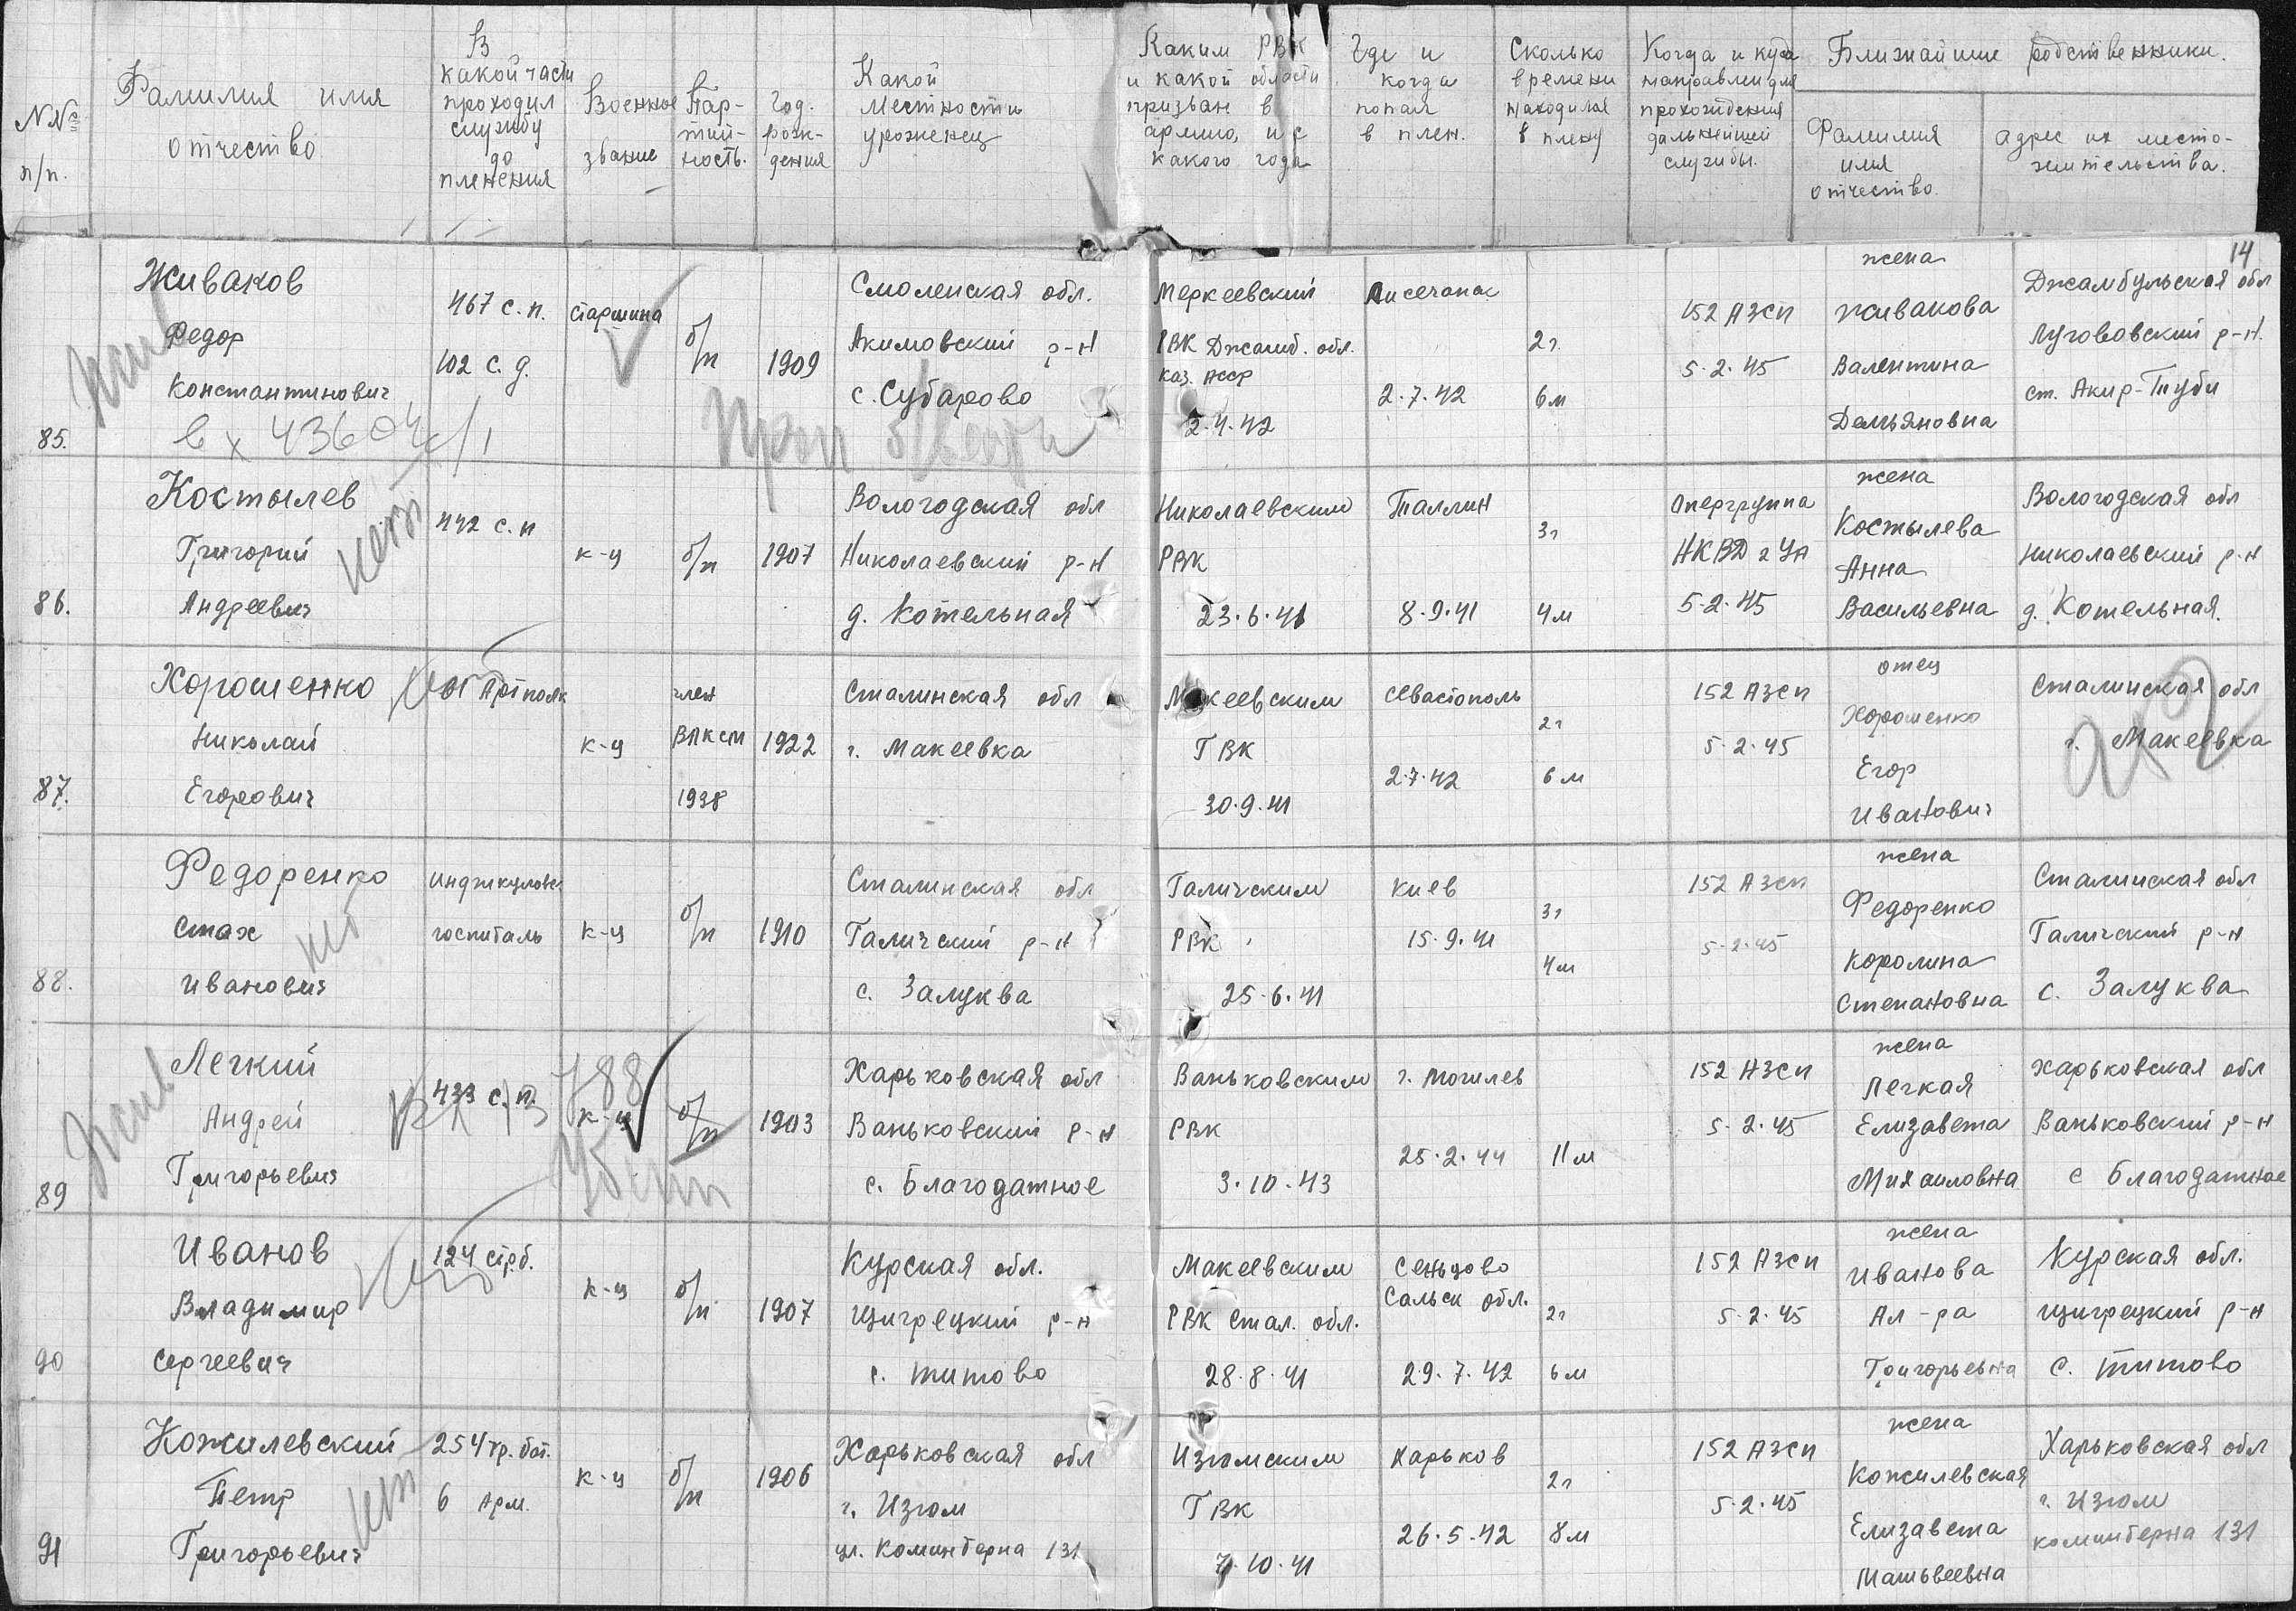 NN° п/п.
Фамилия имя отчество
В какой части проходил службу до пленения
Военное звание
Партийность.
Год. рождения
Какой местности уроженец
Каким РВК и какой области призван в армию, и с какого года
Где и когда попал в плен.
Сколько времени находился в плену
Когда и куда направлен для прохождения дальнейшей службы.
Ближайшие родственники.
Фамилия имя отчество.
Адрес их место-жительства.
14
85.
Живаков
Федор
Константинович
жив
вх 43604с/1
467 с.п.
102 с.д.
старшина
б/п
1909
Смоленская обл.
Акимовский р-н
с. Субарово
Меркеевский
РВК Джамб. обл.
Каз. АССР
2.4.42
Лисечанск
2.7.42
2г
6м
152 АЗСП
5.2.45
жена
Живакова
Валентина
Демьяновна
Джамбульская обл
Луговский р-н.
ст. Акир-Туби
86.
Костылев
Григорий
Андреевич
нет
442 с.п
к-ц
б/п
1907
Вологодская обл
Николаевский р-н
д. Котельная
Николаевским
РВК
23.6.41
Таллин
8.9.41
3г
4м
Опергруппа
НКВД 2 УА
5.2.45
жена
Костылева
Анна
Васильевна
Вологодская обл
Николаевский р-н
д. Котельная.
87.
Хорошенко
Николай
Егорович
Артполк
к-ц
член
ВЛКСМ
1938
1922
Сталинская обл
г. Макеевка
Макеевским
ГВК
30.9.41
Севастополь
2.7.42
2г
6м
152 АЗСП
5.2.45
отец
Хорошенко
Егор
Иванович
Сталинская обл
г. Макеевка
88.
Федоренко
Стах
Иванович
нет
госпиталь
к-ц
б/п
1910
Сталинская обл
Галичский р-н
с. Залуква
Галичским
РВК
25.6.41
Киев
15.9.41
3г
4м
152 АЗСП
5.2.45
жена
Федоренко
Королина
Степановна
Сталинская обл
Галичский р-н
с. Залуква
89
Легкий
Андрей
Григорьевич
жив
433 с.п.
788
к-ц
б/п
1903
Харьковская обл
Ваньковский р-н
с. Благодатное
Ваньковским
РВК
3.10.43
г. Могилев
25.2.44
11м
152 АЗСП
5.2.45
жена
Легкая
Елизавета
Михаиловна
Харьковская обл
Ваньковский р-н
с Благодатное
90
Иванов
Владимир
Сергеевич
нет
124 стрб.
к-ц
б/п
1907
Курская обл.
Щигрецкий р-н
с. Титово
Макеевским
РВК Стал. обл.
28.8.41
Сеньцово
Сальск обл.
29.7.42
2г
6м
152 АЗСП
5.2.45
жена
Иванова
Ал-ра
Григорьевна
Курская обл.
Щигрецкий р-н
с. Титово
91
Кожилевский
Петр
Григорьевич
нет
254 тр. бат.
6 Арм.
к-ц
б/п
1906
Харьковская обл
г. Изюм
ул. Коминтерна 131
Изюмским
ГВК
7.10.41
Харьков
26.5.42
2г
8м
152 АЗСП
5.2.45
жена
Кожилевская
Елизавета
Матвеевна
Харьковская обл
г. Изюм
коминтерна 131